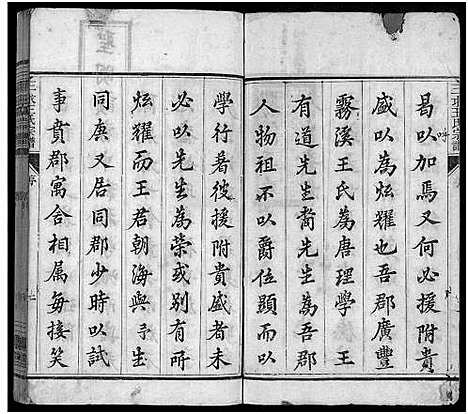 三田王氏宗譜
曷以加焉又何必援附貴
盛以為炫耀也吾郡廣豐
霧溪王氏為唐理學王
有道先生裔先生為吾郡
人物祖不以爵位顯而以
學行著彼援附貴盛者未
必以先生為榮或別有所
炫耀而王君朝海與予生
同庚又居同郡少時以試
事賁郡寓合相属每接笑
王氏宗譜
序